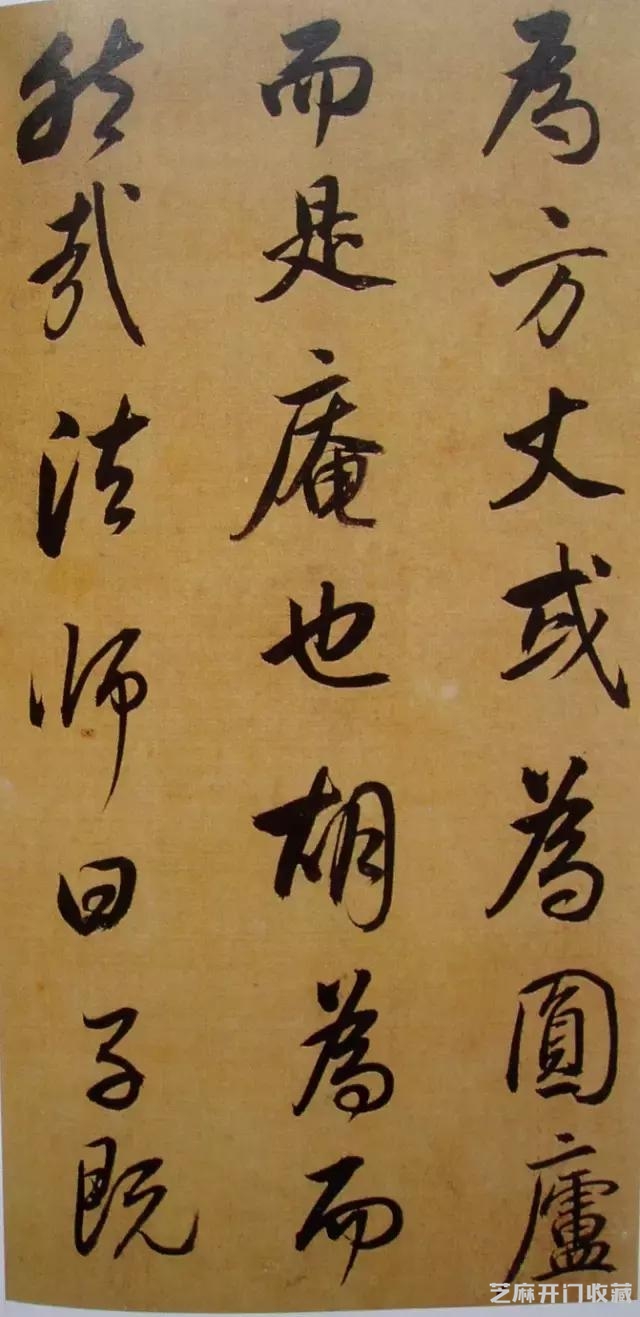 為方丈或為圓廬
而是庵也胡為而
然哉法師曰子既
芝麻开门收藏